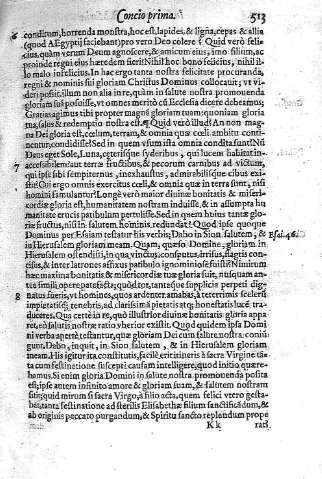 Concio prima. 513
6 conditum, horrenda monstra, hoc est, lapides, & ligna, cepas & allia
(quod AEgyptij faciebant) pro vero Deo colere? Quid verò felicius,
quàm verum Deum agnoscere, & amicum eius, imo filium, ac
proinde regni eius hæredem fieri? Nihil hoc bono felicius, nihil illo
malo infelicius. In hac ergo tanta nostra felicitate procuranda,
regni & nominis sui gloriam Christus Dominus collocauit; vt videri
possit illum non alia in re, quàm in salute nostra promouenda
gloriam suã posuisse, vt omnes meritò cũ Ecclesia dicere debeamus;
Gratias agimus tibi propter magnã gloriam tuam: quoniam gloria
tua, salus & redemptio nostra est. Quid verò illud? An non magna
Dei gloria est, cœlum, terram, & omnia quæ cœli ambitu continentur,
condidisse? Sed in quem vsum ista omnia condita sunt? Nũ
Deus eget Sole, Luna, cęterisque syderibus, qui lucem habitat inaccessibilem:
aut terræ fructibus, & pecorum carnibus ad victum,
7 qui ipse sibi sempiternus, inexhaustus, admirabilisque cibus existit?
Cui ergo omnes exercitus cœli, & omnia quæ in terra sunt, nisi
homini famulantur? Longè verò maior diuinæ bonitatis & misericordiæ
gloria est, humanitatem nostram induisse, & in assumpta humanitate
crucis patibulum pertulisse. Sed in quem huius tantæ gloriæ
fructus, nisi in salutem hominis redundat? Quod ipse quoque
Dominus per Esaiam testatur his verbis; Dabo in Sion salutem, & Esai. 46.
in Hierusalem gloriam meam. Quam, quæso Domine, gloriam in
Hierusalem ostendisti, in qua vinctus, consputus, irrisus, flagris concisus,
& inter latrones affixus patibulo ignominiosè fuisti? Nimirum
hæc maxima bonitatis & misericordiæ tuæ gloria fuit, nusquam antea
simili opere patefacta; quòd tot, tantaque supplicia perpeti dignatus
8 fueris, vt homines, quos ardenter amabas, à teterrimis sceleris
impietatisq́; tenebris, ad clarissimã pietatis atq; honestatis lucẽ traduceres.
Qua certè in re, quò illustrior diuinæ bonitatis gloria apparet,
eò salutis nostræ ratio vberior existit. Quod quidem ipsa Domini
verba apertè testantur, quæ gloriam Dei cum salute nostra coniungunt.
Dabo, inquit, in Sion salutem, & in Hierusalem gloriam
meam. His igitur ita constitutis, facilè erit itineris à sacra Virgine tãta
cum festinatione suscepti causam intelligere, quod initio quærebamus.
Si enim gloria Domini in salute nostra promouenda posita
est; ipse autem infinito amore & gloriam suam, & salutem nostram
sitit; quid mirum si sacra Virgo, à filio acta, quem felici vtero gestabat,
tanta festinatione ad sterilis Elisabethæ filium sanctificãdum, &
ab originis peccato purgandum, & Spiritu sancto replendum prope-
K k rati